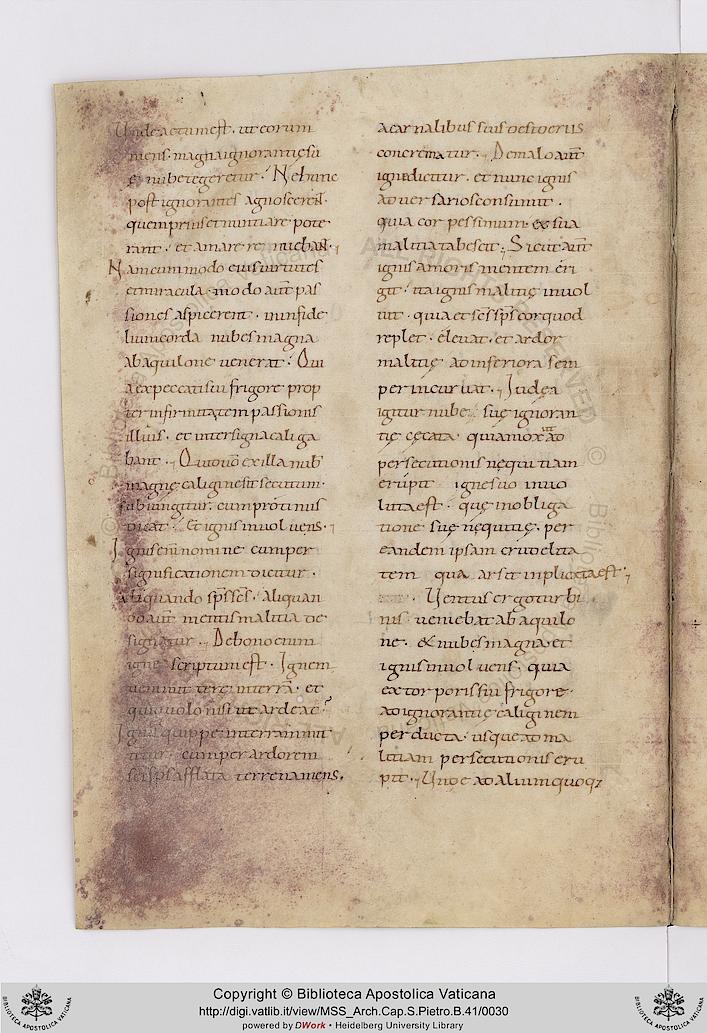 Unde actum est · ut eorum
mens · magna ignorantię su
ę nube tegeretur · Ne hunc
post ignorantes agnoscerent ·
quem prius et nuntiare pote
rant · et amare renuebant ·
Nam cum modo eius virtutes
et miracula · modo aut pas
siones aspicerent · in infide
lium corda nubes magna
ab aquilone venerat · Qui
a ex peccati sui frigore prop
ter infirmitatem passionis
illius · et inter signa caliga
bant · Quid vo ex illa nube
magne caliginis sit secutum ·
subiungitur · cum protinus
dicat · Et ignis involvens ·
Ignis eni nomine cum per
significationem dicitur ·
aliquando sps ses · aliquan
do aut mentis malitia de
signatur · De bono enim
igne scriptum est · Ignem
veni mittere in terra · et
quid volo nisi ut ardeat ?
Ignis quippe in terram mit
titur · cum per ardorem
sci sps afflata terrena mens ·
a carnalibus suis desideriis
concrematur · De malo aut
igne dicitur · et nunc ignis
adversarios consumit ·
quia cor pessimum · ex sua
malitia tabescit · Sicut aut
ignis amoris mentem eri
git · ita ignis malitię invol
vit · quia et ses sps cor quod
replet · elevat · et ardor
malitię ad inferiora sem
per incurvat · Iudea
igitur nube suę ignoran
tię cęcata · quia mox ad
persecutionis nequitiam
erupit igne suo invo
luta est · quę in obliga
tione suę nequitię · per
eandem ipsam crudelita
tem qua arsit inplicita est ·
Ventus ergo turbi
nis veniebat ab aquilo
ne · & nubes magna · et
ignis involvens · quia
ex torporis sui frigore ·
ad ignorantię caliginem
perducta · usque ad ma
litiam persecutionis eru
pit · Unde ad alium quoq;
Copyright © Biblioteca Apostolica Vaticana
http://digi.vatlib.it/view/MSS_Arch.Cap.S.Pietro.B.41/0030
powered by DWork • Heidelberg University Library